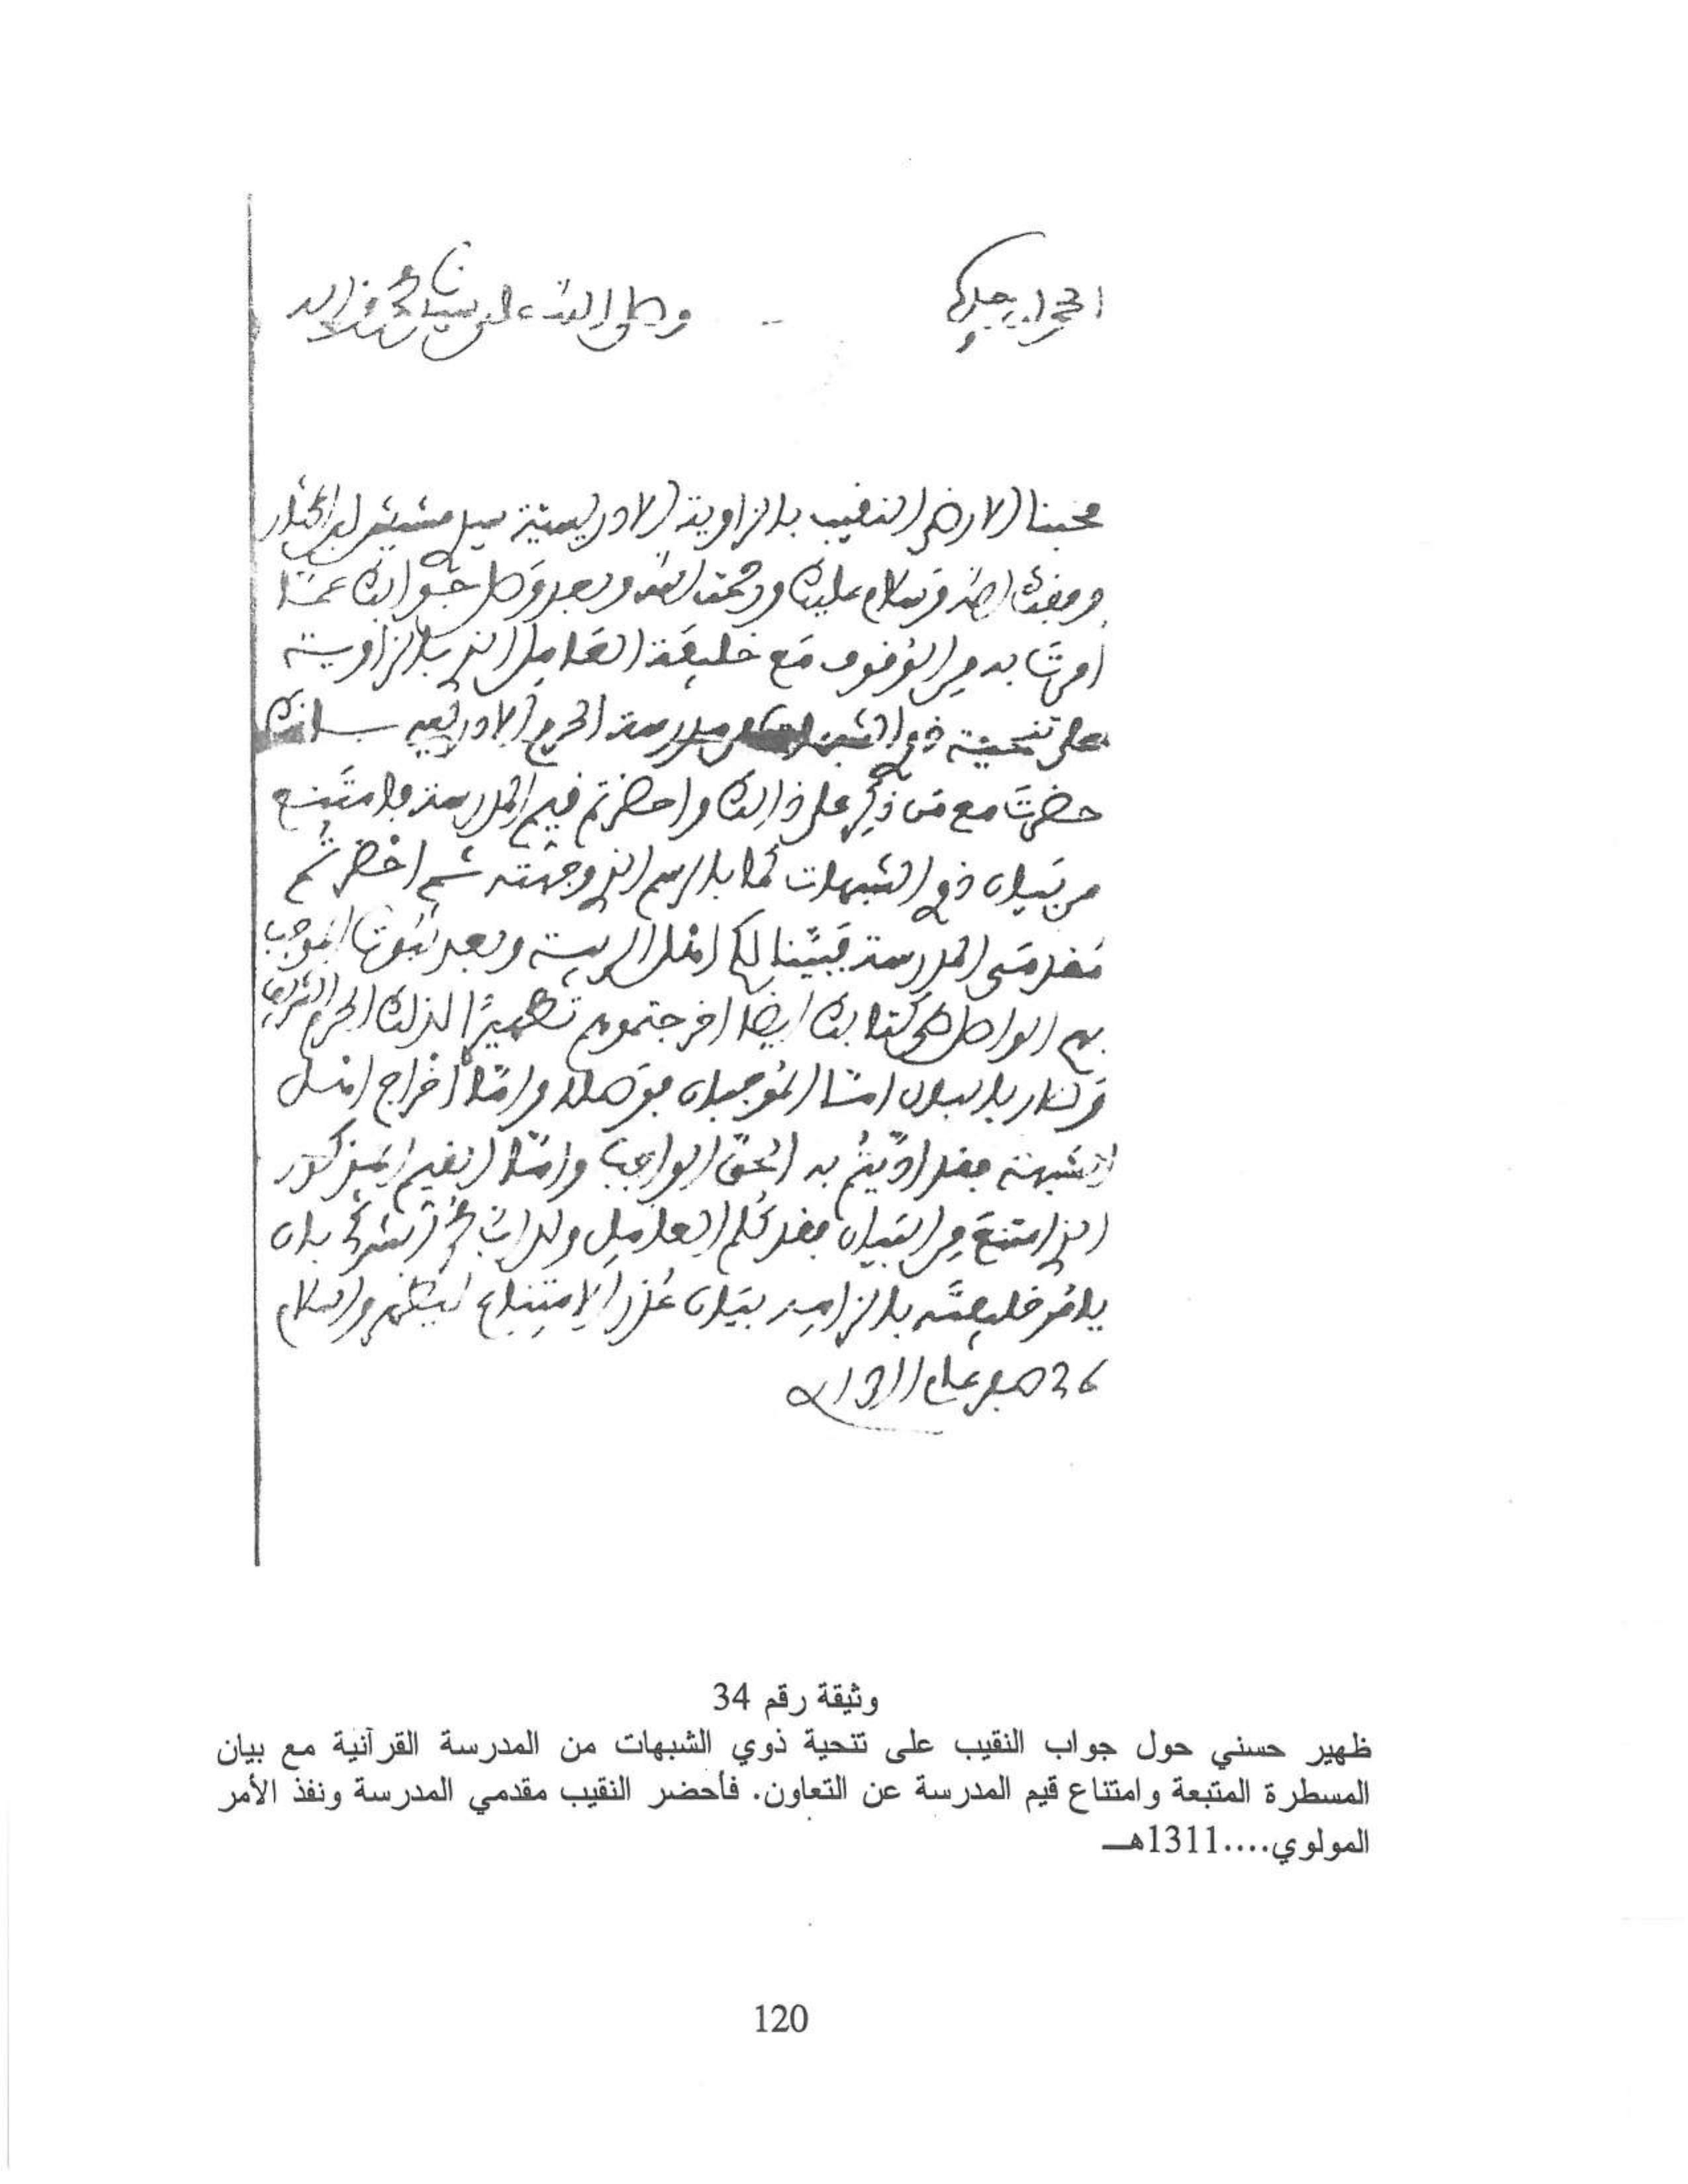 الحمد لله وحده وصلى الله على سيدنا محمد وءاله
محبنا الارضى النقيب بالزاوية الادريسية سيدي
وفقك الله وسلام عليك ورحمت الله وبعد وصل جوابك عما
أمرت به من الوقوف مع خليفة العامل الذي بالزاوية
على تنحية ذوي الشبهات من مدرسة الحرم الادريسي بانك
حضرت مع من ذكر على ذالك واحضرتم قيم المدرسة فامتنع
من بيان ذوي الشبهات كما بالرسم الذي وجهته ثم احضرتم
مقدمي المدرسة فبينا لكم اهل الريبة وبعد ثبوتها الموجب
بهم الواصل طي كتابك ايضا اخرجتموهم تطهيرا لذلك الحرم الشريف
وصار بالبال اما الموجبان فوصلا واما اخراج اهل
الشبهة فقد اديتم به الحق الواجب واما القيم المذكور
الذي امتنع من البيان فقد كلم العامل ولد اب محمد الشركي بان
يامر خليفته بالزامه بيان عذر الامتناع ليظهر والسلام
26 صفر عام 1311
وثيقة رقم 34
ظهير حسني حول جواب النقيب على تنحية ذوي الشبهات من المدرسة القرآنية مع بيان
المسطرة المتبعة وامتناع قيم المدرسة عن التعاون. فأحضر النقيب مقدمي المدرسة ونفذ الأمر
المولوي....1311هـ
120